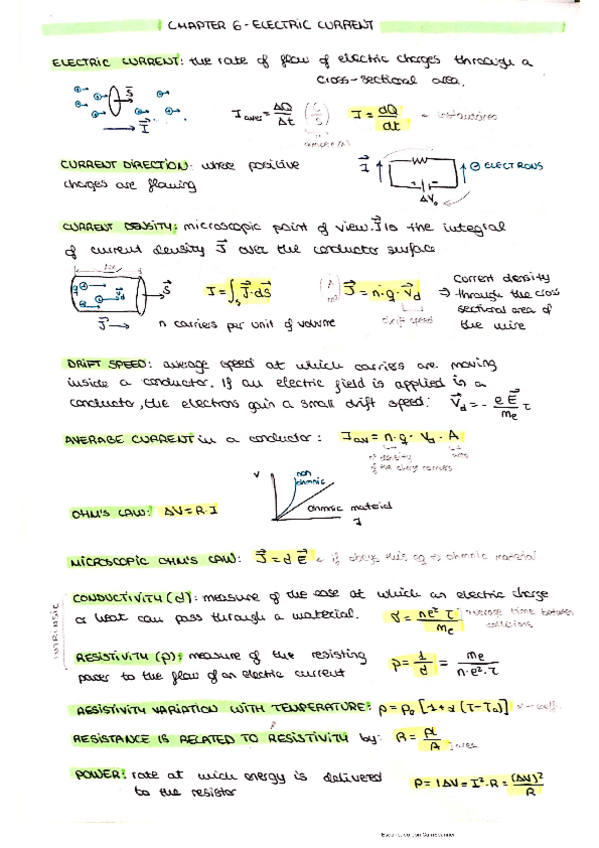 CHAPTER 6 - ELECTRIC CURRENT
ELECTRIC CURRENT: the rate of flow of electric charges through a
cross-sectional area.
I aver = ΔQ/Δt (C/s) I = dQ/dt
CURRENT DIRECTION: where positive
charges are flowing
I ELECTRONS
ΔV₀
CURRENT DENSITY: microscopic point of view. I is the integral
of current density J over the conductor surface
I = ∫s J·dS J = n·q·Vd ⇒ Current density
through the cross
sectional area of
the wire
n carries per unit of volume drift speed
DRIFT SPEED: average speed at which carries are moving
inside a conductor. If an electric field is applied in a
conductor, the electrons gain a small drift speed: Vd = - eE/me τ
AVERAGE CURRENT in a conductor: Iav = n·q·Vd·A
density
of the charge carriers
V non
ohmnic
ohmnic material
I
OHM'S LAW: ΔV = R·I
MICROSCOPIC OHM'S LAW: J = σE if obeys this eq → ohmnic material
CONDUCTIVITY (σ): measure of the ease at which an electric charge
or heat can pass through a material. σ = ne²τ/me average time between
collisions
INTRINSIC
RESISTIVITY (ρ): measure of the resisting
power to the flow of an electric current ρ = 1/σ = me/n·e²·τ
RESISTIVITY VARIATION WITH TEMPERATURE: ρ = ρ₀ [1 + α (T - T₀)]
RESISTANCE IS RELATED TO RESISTIVITY by: R = ρL/A
POWER: rate at wich energy is delivered
to the resistor P = IΔV = I²·R = (ΔV)²/R
Escaneado con CamScanner